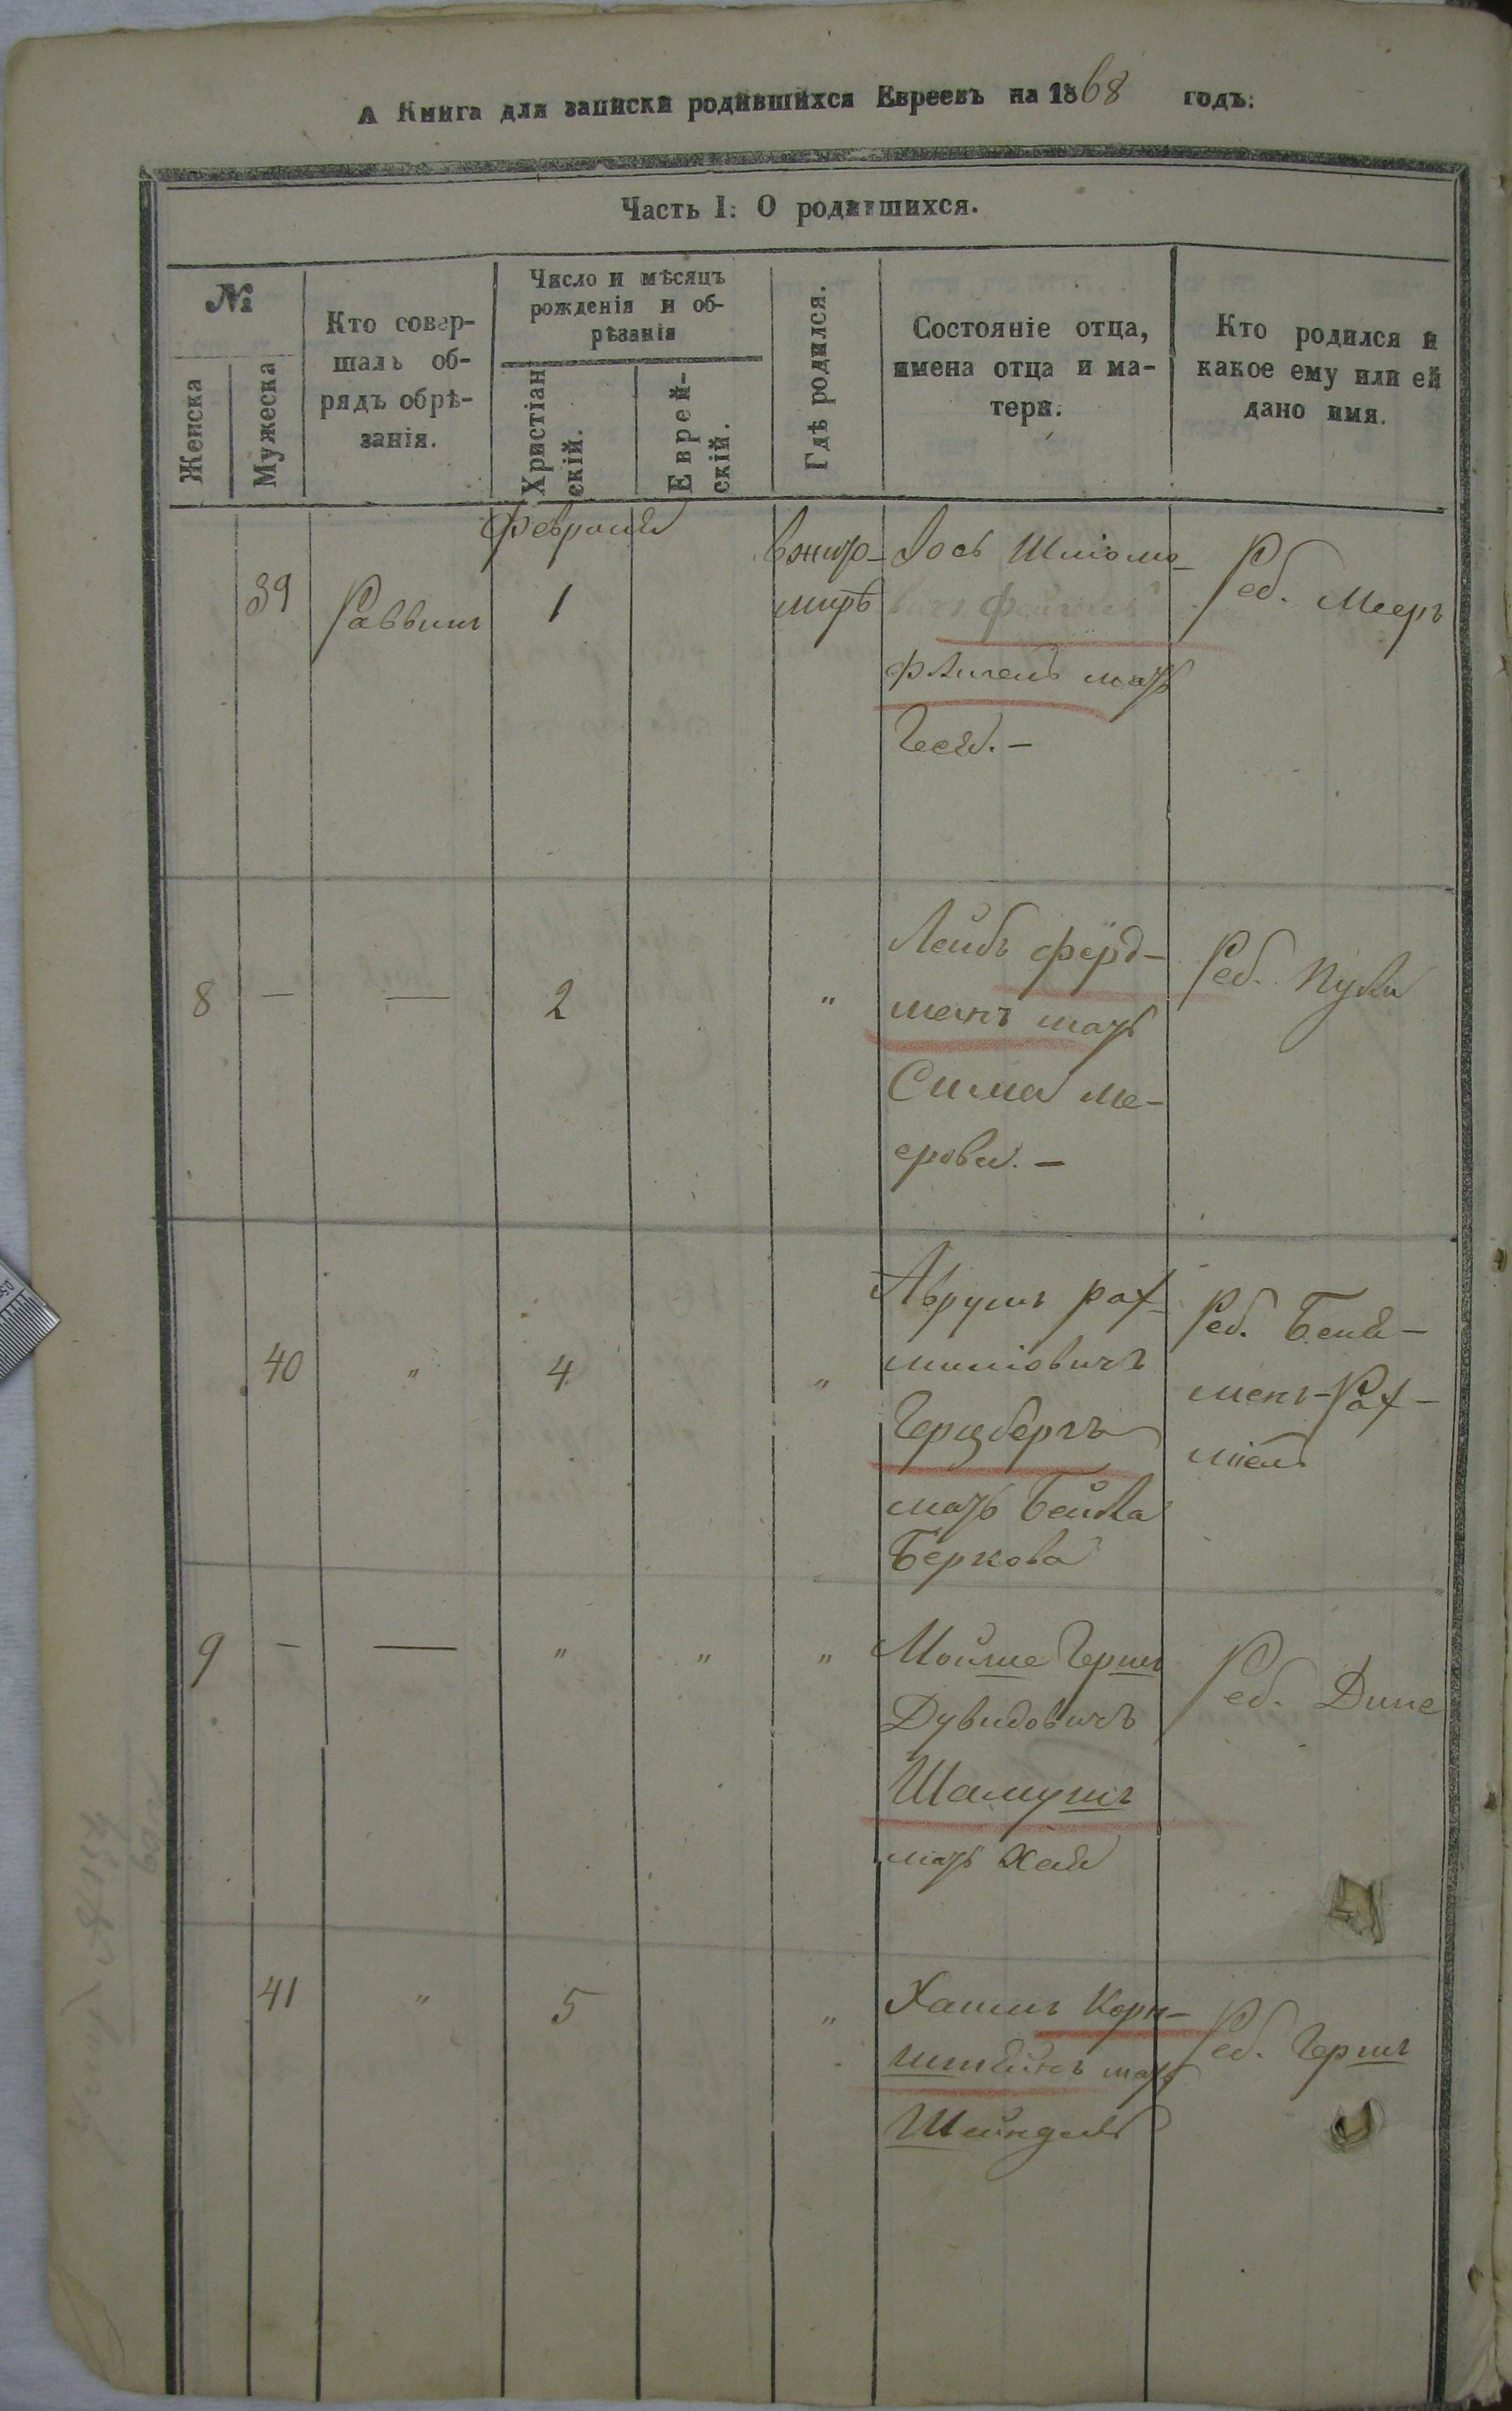 А Книга для записки родившихся Евреевъ на 1868 годъ:
Часть I: О родившихся.
№
Женска
Мужеска
Кто совер-
шалъ об-
рядъ обрѣ-
занія.
Число и мѣсяцъ
рожденія и об-
рѣзанія
Христіан
скій.
Еврей-
скій.
Гдѣ родился.
Состояніе отца,
имена отца и ма-
тери.
Кто родился и
какое ему или ей
дано имя.
Февраля
39
Раввинъ
1
вжито-
миръ
Іось Шліомо-
вичъ
мать
Геся. –
Реб. Мееръ
8 — — 2 "
Лейбъ Фёрд-
манъ мать
Сима Ме-
ерова. –
Реб.
40 " 4 "
Аврумъ Рах-
миліовичъ
Герцбергъ
мать Бейла
Беркова
Реб. Бенія-
менъ-Рах-
міель
9 — — " " "
Мойше Герш
Дувидовичъ
Шамушъ
мать Хая
Реб. Дина
41 " 5 "
Хаимъ Корн-
штейнъ мать
Шейндля
Реб. Гершъ